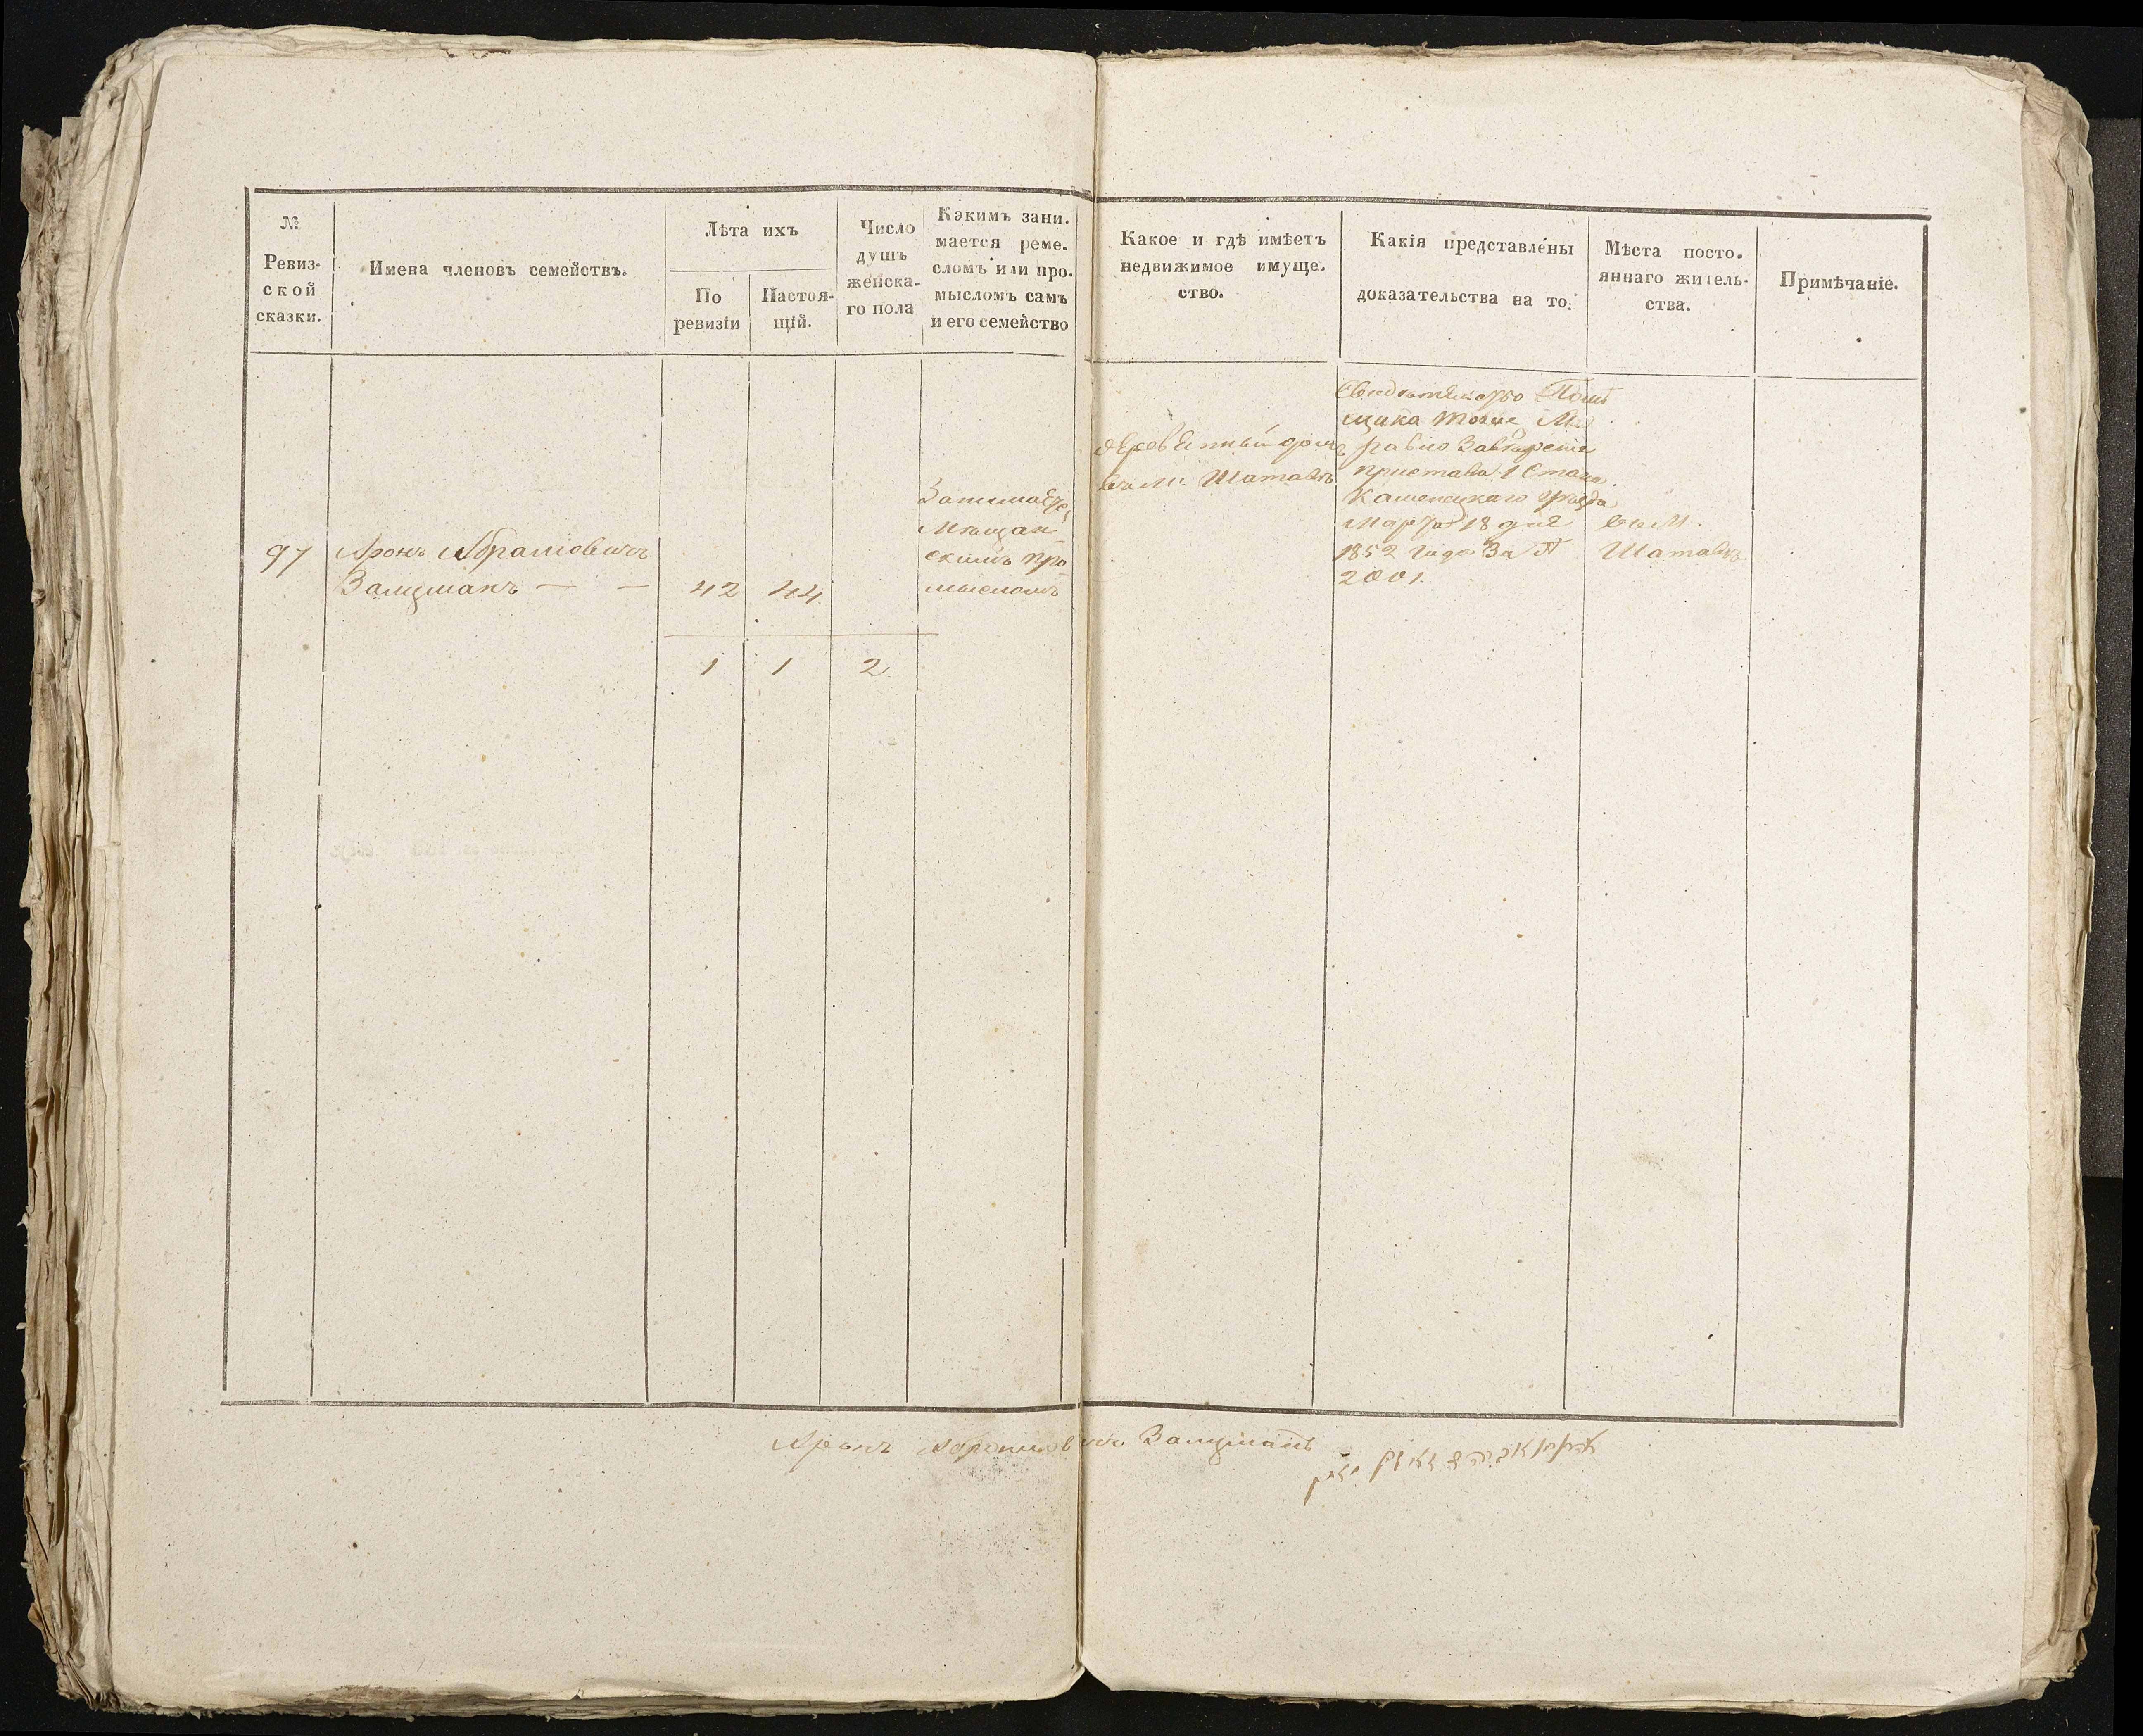 №
Ревиз-
ской
сказки.
Имена членовъ семействъ.
Лѣта ихъ
По
ревизіи
Настоя-
щій.
Число
душъ
женска-
го пола
Какимъ зани-
мается реме-
сломъ или про-
мысломъ самъ
и его семейство
Какое и гдѣ имѣетъ
недвижимое имуще-
ство.
Какія представлены
доказательства на то.
Мѣста посто-
яннаго житель-
ства.
Примѣчаніе.
97
Аронъ Абрамовичъ
Залцманъ — —
42
44
Мѣщан
скимъ про
мысломъ
деревянный домъ
въ м. Шатавѣ
Свидѣтельство Помѣ
щика
пристава 1 Стана
Каменецкаго уѣзда
Марта 18 дня
1852 года За №
2001.
въ М.
Шатавѣ
1
1
2
Аронъ Абрамовичъ Залцманъ